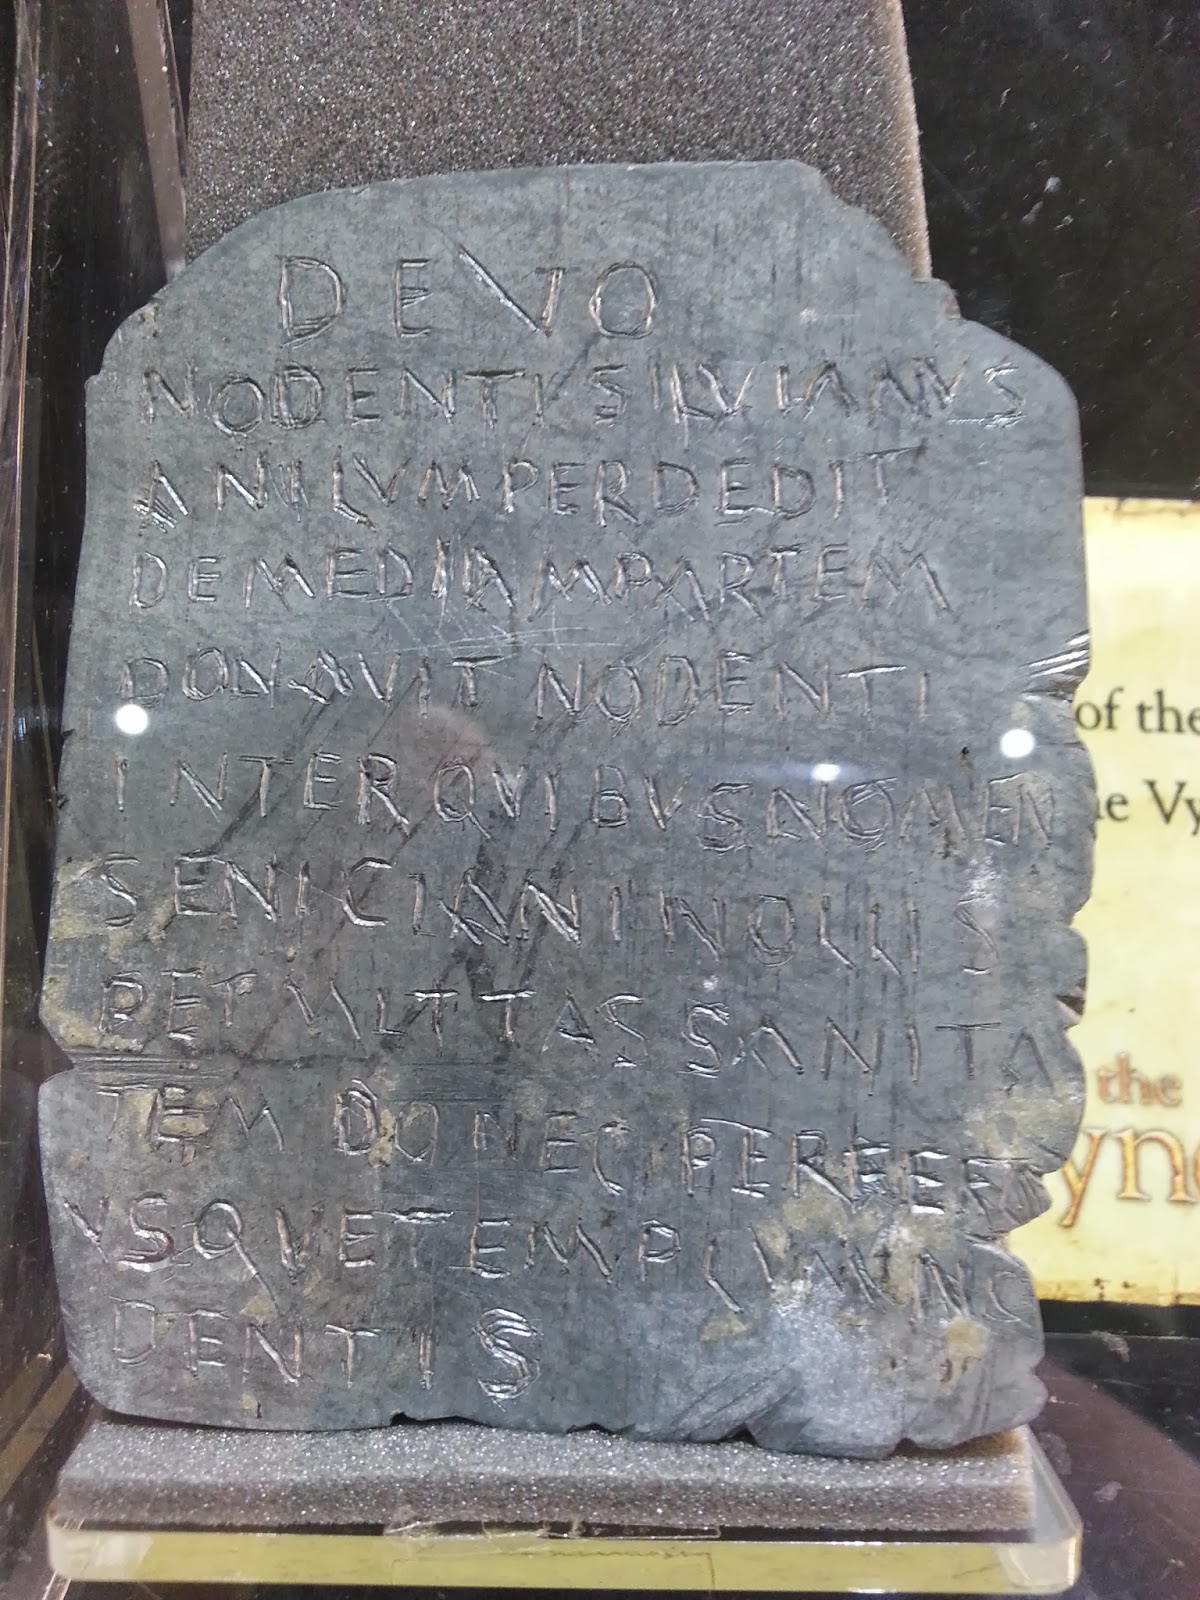 DEVO
NODENTI SILVIANVS
ANILVM PERDEDIT
DEMEDIAM PARTEM
DONAVIT NODENTI
INTER QVIBVS NOMEN
SENICIANI NOLLIS
PETMITTAS SANITA
TEM DONEC
VSQVE TEMPLVM NO
DENTIS
of the
the